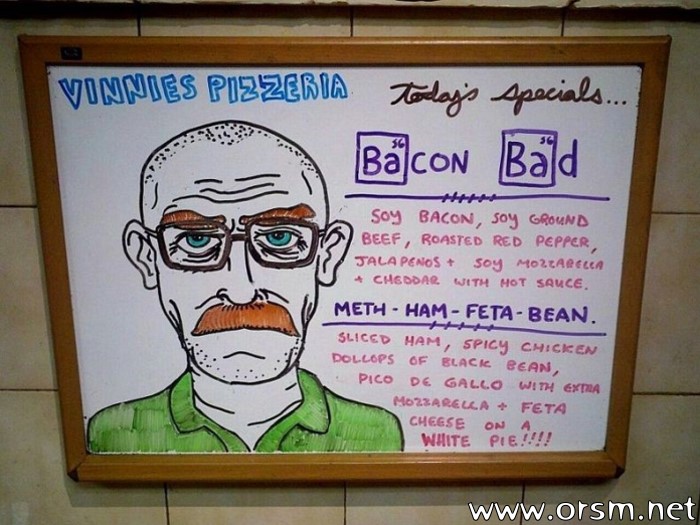 VINNIES PIZZERIA
Today's Specials...
Ba56CON Ba56d
SOY BACON, SOY GROUND
BEEF, ROASTED RED PEPPER,
JALAPENOS + SOY MOZZARELLA
+ CHEDDAR WITH HOT SAUCE.
METH-HAM-FETA-BEAN.
SLICED HAM, SPICY CHICKEN
DOLLOPS OF BLACK BEAN,
PICO DE GALLO WITH EXTRA
MOZZARELLA + FETA
CHEESE ON A
WHITE PIE!!!!
www.orsm.net